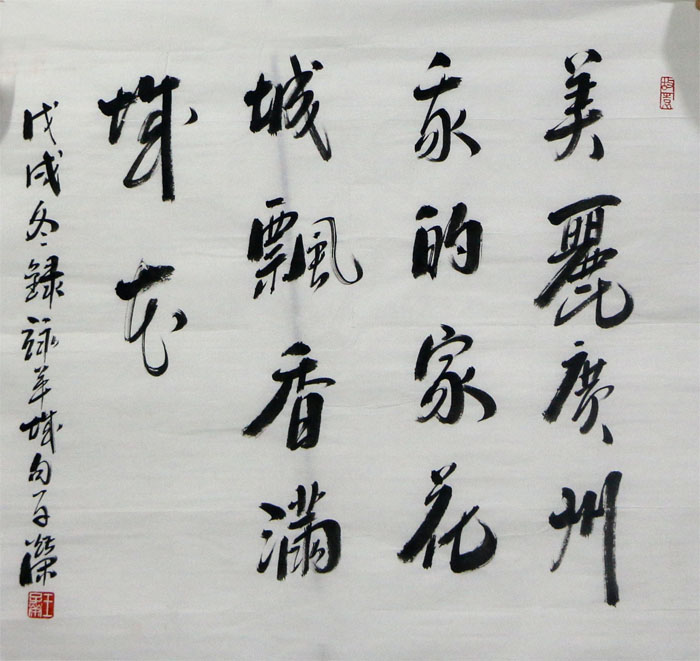 美麗廣州
我的家花
城飄香滿
城花
戊戌冬録詠羊城句子